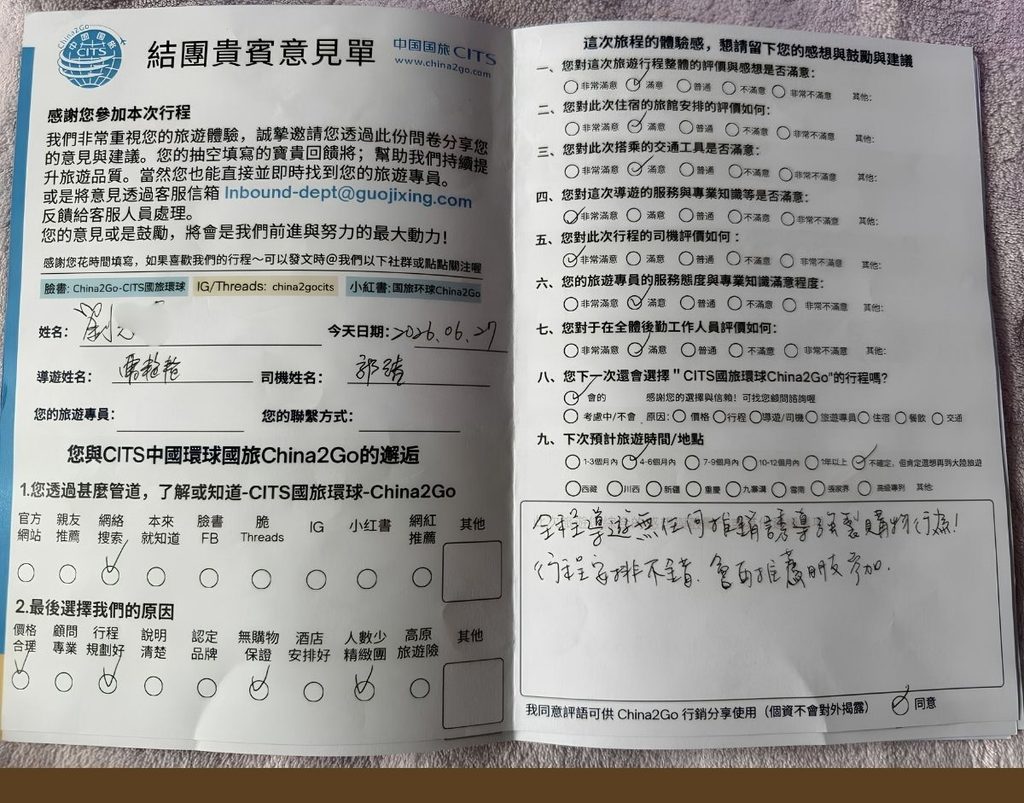 China2Go
中国国旅
CITS
結團貴賓意見單
中国国旅 CITS
www.china2go.com
感謝您參加本次行程
我們非常重視您的旅遊體驗，誠摯邀請您透過此份問卷分享您
的意見與建議。您的抽空填寫的寶貴回饋將；幫助我們持續提
升旅遊品質。當然您也能直接並即時找到您的旅遊專員。
或是將意見透過客服信箱 Inbound-dept@guojixing.com
反饋給客服人員處理。
您的意見或是鼓勵，將會是我們前進與努力的最大動力！
感謝您花時間填寫，如果喜歡我們的行程～可以發文時@我們以下社群或點點關注喔
臉書: China2Go-CITS國旅環球 IG/Threads: china2gocits 小紅書: 国旅环球China2Go
姓名： 劉 今天日期: 2026.06.27
導遊姓名: 司機姓名: 郭靖
您的旅遊專員: 您的聯繫方式:
您與CITS中國環球國旅China2Go的邂逅
1.您透過甚麼管道，了解或知道-CITS國旅環球-China2Go
官方網站 親友推薦 網絡搜索 本來就知道 臉書FB 脆Threads IG 小红書 網紅推薦 其他
2.最後選擇我們的原因
價格合理 顧問專業 行程規劃好 說明清楚 認定品牌 無購物保證 酒店安排好 人數少精緻團 高原旅遊險 其他
這次旅程的體驗感，懇請留下您的感想與鼓勵與建議
一、您對這次旅遊行程整體的評價與感想是否滿意：
非常滿意 滿意 普通 不滿意 非常不滿意 其他:
二、您對此次住宿的旅館安排的評價如何：
非常滿意 滿意 普通 不滿意 非常不滿意 其他:
三、您對此次搭乘的交通工具是否滿意：
非常滿意 滿意 普通 不滿意 非常不滿意 其他:
四、您對這次導遊的服務與專業知識等是否滿意：
非常滿意 滿意 普通 不滿意 非常不滿意 其他:
五、您對此次行程的司機評價如何：
非常滿意 滿意 普通 不滿意 非常不滿意 其他:
六、您的旅遊專員的服務態度與專業知識滿意程度：
非常滿意 滿意 普通 不滿意 非常不滿意 其他:
七、您對于在全體後勤工作人員評價如何：
非常滿意 滿意 普通 不滿意 非常不滿意 其他:
八、您下一次還會選擇"CITS國旅環球China2Go"的行程嗎?
會的 感謝您的選擇與信賴！可找您顧問諮詢喔
考慮中/不會 原因: 價格 行程 導遊/司機 旅遊專員 住宿 餐飲 交通
九、下次預計旅遊時間/地點
1-3個月內 4-6個月內 7-9個月內 10-12個月內 1年以上 不確定，但肯定還想再到大陸旅遊
西藏 川西 新疆 重慶 九寨溝 雲南 張家界 高級專列 其他:
全程導遊無任何推銷誘導強製購物行為!
行程安排不錯.會再推薦朋友參加.
我同意評語可供 China2Go 行銷分享使用（個資不會對外揭露） 同意